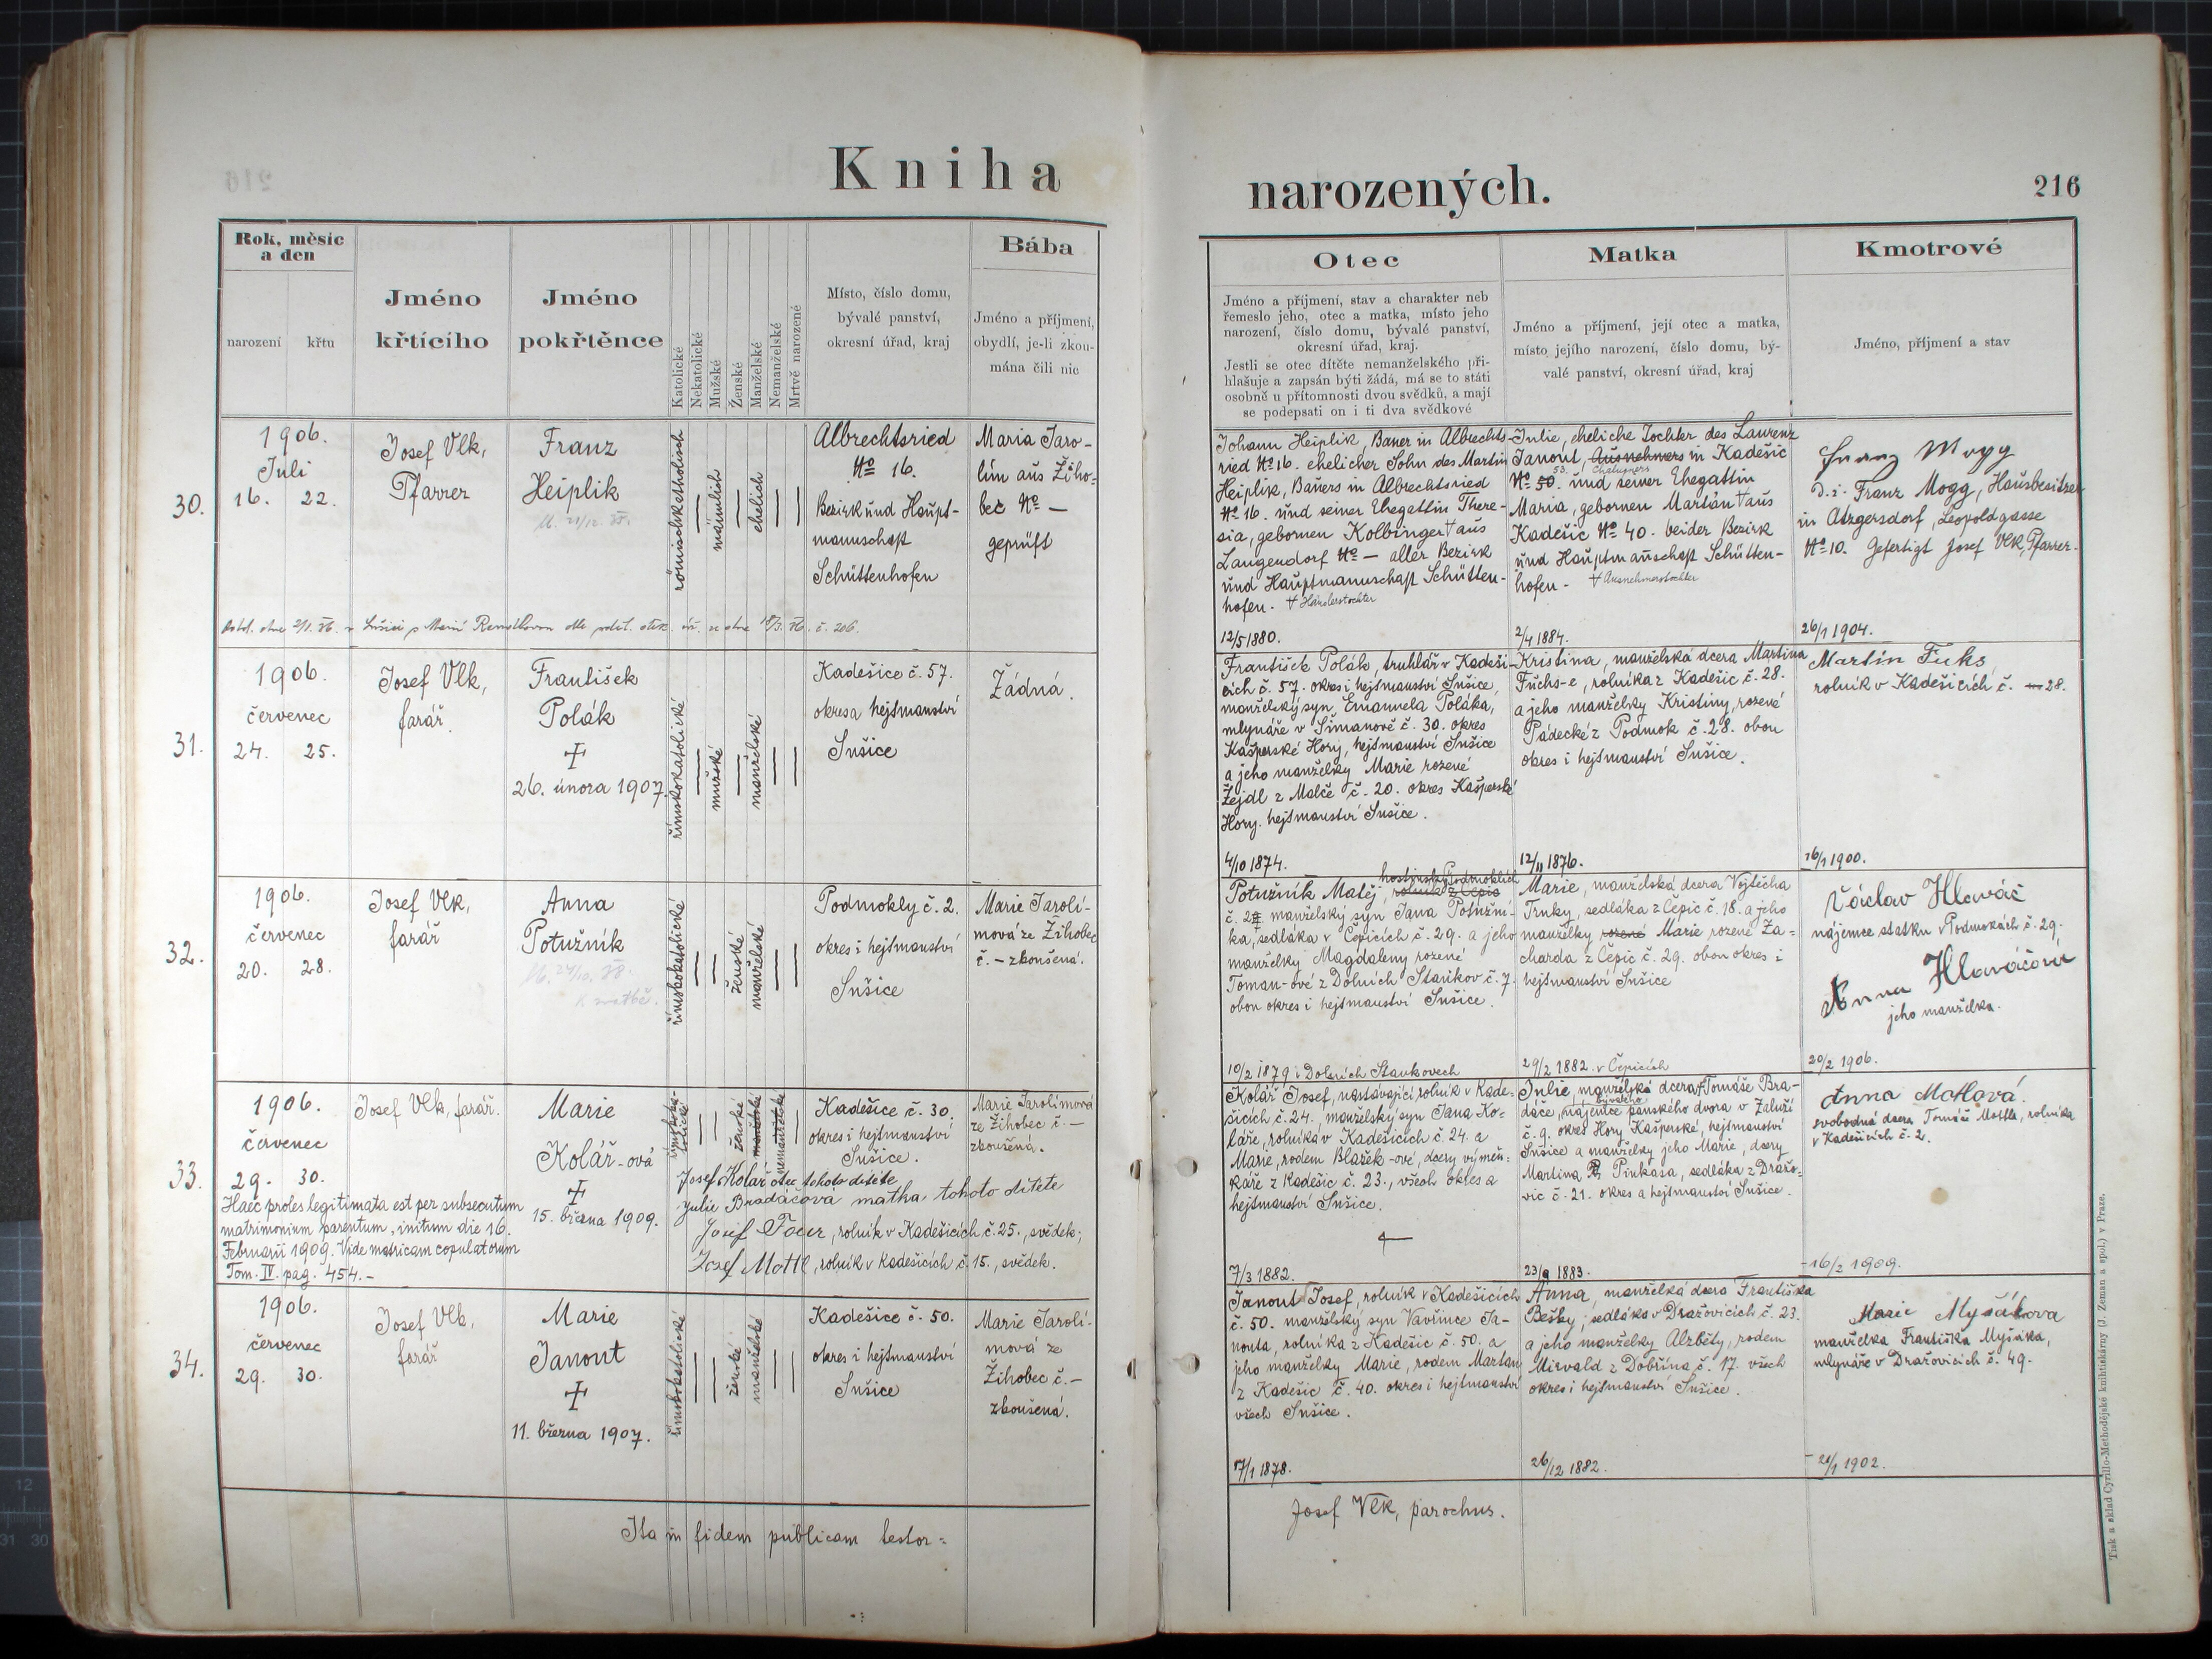 Kniha
narozených.
216
Rok, měsíc
a den
narození
křtu
Jméno
křtícího
Jméno
pokřtěnce
Katolické
Nekatolické
Mužské
Ženské
Manželské
Nemanželské
Mrtvě narozené
Místo, číslo domu,
bývalé panství,
okresní úřad, kraj
Bába
Jméno a příjmení,
obydlí, je-li zkou-
mána čili nic
Otec
Jméno a příjmení, stav a charakter neb
řemeslo jeho, otec a matka, místo jeho
narození, číslo domu, bývalé panství,
okresní úřad, kraj.
Jestli se otec dítěte nemanželského při-
hlašuje a zapsán býti žádá, má se to státi
osobně u přítomnosti dvou svědků, a mají
se podepsati on i ti dva svědkové
Matka
Jméno a příjmení, její otec a matka,
místo jejího narození, číslo domu, bý-
valé panství, okresní úřad, kraj
Kmotrové
Jméno, příjmení a stav
30.
1906.
Juli
16. 22.
Josef Vlk,
Pfarrer
Franz
Heiplik
römischkatholisch
männlich
ehelich
Albrechtsried
No 16.
Bezirk und Haupt-
mannschaft
Schüttenhofen
Maria Jaro-
lim aus Žiho-
bec No —
geprüft
Johann Heiplik, Bauer in Albrechts-
ried No 16. ehelicher Sohn des Martin
Heiplik, Bauers in Albrechtsried
No 16. und seiner Ehegattin There-
sia, gebornen Kolbinger + aus
Langendorf No — aller Bezirk
und Hauptmannschaft Schütten-
hofen. + Häuslerstochter
12/5 1880.
Julie, eheliche Tochter des Laurenz
Janout, Ausnehmers in Kadešic
Chalupners
53.
No 50. und seiner Ehegattin
Maria, gebornen Martan + aus
Kadešic No 40. beider Bezirk
und Hauptmannschaft Schütten-
hofen. + Ausnehmerstochter
2/4 1884.
Franz Mogg
d. i. Franz Mogg, Hausbesitzer
in Atzgersdorf, Leopoldgasse
No 10. Gefertigt Josef Vlk, Pfarrer.
26/1 1904.
31.
1906.
červenec
24. 25.
Josef Vlk,
farář.
František
Polák
+
26. února 1907.
římskokatolické
mužské
manželské
Kadešice č. 57.
okres a hejtmanství
Sušice
Žádná.
František Polák, truhlář v Kadeši-
cích č. 57. okres i hejtmanství Sušice,
manželský syn Emanuela Poláka,
mlynáře v Šimanově č. 30. okres
Kašperské Hory, hejtmanství Sušice
a jeho manželky Marie rozené
Žejdl z Malče č. 20. okres Kašperské
Hory. hejtmanství Sušice.
4/10 1874.
Kristina, manželská dcera Martina
Fuchs-e, rolníka z Kadešic č. 28.
a jeho manželky Kristiny, rozené
Pádecké z Podmok č. 28. obou
okres i hejtmanství Sušice.
12/11 1876.
Martin Fuks
rolník v Kadešicích č. 28.
16/1 1900.
32.
1906.
červenec
20. 28.
Josef Vlk,
farář
Anna
Potužník
římskokatolické
ženské
manželské
Podmokly č. 2.
okres i hejtmanství
Sušice
Marie Jarolí-
mová ze Žihobec
č. – zkoušená.
hostinský v Podmoklích
Potužník Matěj, rolník z Čepic
č. 2. manželský syn Jana Potužní-
ka, sedláka v Čepicích č. 29. a jeho
manželky Magdaleny rozené
Toman-ové z Dolních Staňkov č. 7.
obou okres i hejtmanství Sušice.
10/2 1879 v Dolních Staňkovech
Marie, manželská dcera Vojtěcha
Trnky, sedláka z Čepic č. 18. a jeho
manželky rozené Marie rozené Za-
charda z Čepic č. 29. obou okres i
hejtmanství Sušice
29/2 1882. v Čepicích
Václav Hlaváč
nájemce statku v Podmokách č. 29.
Anna Hlaváčová
jeho manželka.
20/2 1906.
33.
1906.
červenec
29. 30.
Haec proles legitimata est per subsecutum
matrimonium parentum, initum die 16.
Februarii 1909. Vide matricam copulatorum
Tom. IV. pag. 454.–
Josef Vlk, farář.
Marie
Kolář-ová
+
15. března 1909.
římsko-
katolické
ženské
manželské
nemanželské
Kadešice č. 30.
okres i hejtmanství
Sušice.
Marie Jarolímová
ze Žihobec č. —
zkoušená.
Josef Kolář otec tohoto dítěte
Julie Bradáčová matka tohoto dítěte
Josef Tocur, rolník v Kadešicích č. 25., svědek;
Josef Mottl, rolník v Kadešicích č. 15., svědek.
Kolář Josef, nastávající rolník v Kade-
šicích č. 24., manželský syn Jana Ko-
láře, rolníka v Kadešicích č. 24. a
Marie, rodem Blažek-ové, dcery výměn-
káře z Kadešic č. 23., všech okres a
hejtmanství Sušice.
7/3 1882.
Julie, manželská dcera + Tomáše Bra-
bývalého
dáče, nájemce panského dvora v Záluží
č. 9. okres Hory Kašperské, hejtmanství
Sušice a manželky jeho Marie, dcery
Martina Pinkasa, sedláka z Dražo-
vic č. 21. okres a hejtmanství Sušice.
23/9 1883.
Anna Motlová.
svobodná dcera Tomáše Mottla, rolníka
v Kadešicích č. 2.
16/2 1909.
34.
1906.
červenec
29. 30.
Josef Vlk,
farář
Marie
Janout
+
11. března 1907.
římskokatolické
ženské
manželské
Kadešice č. 50.
okres i hejtmanství
Sušice
Marie Jarolí-
mová ze
Žihobec č. –
zkoušená.
Janout Josef, rolník v Kadešicích
č. 50. manželský syn Vavřince Ja-
nouta, rolníka z Kadešic č. 50. a
jeho manželky Marie, rodem Martan
z Kadešic č. 40. okres i hejtmanství
všech Sušice.
17/1 1878.
Anna, manželská dcera Františka
Bešky, sedláka v Dražovicích č. 23.
a jeho manželky Alžběty, rodem
Mirvald z Dobřína č. 17. všech
okres i hejtmanství Sušice.
26/12 1882.
Marie Myšákova
manželka Františka Myšáka,
mlynáře v Dražovicích č. 49.
21/1 1902.
Ita in fidem publicam testor=
Josef Vlk, parochus.
Tisk a sklad Cyrillo-Methodějské knihtiskárny (J. Zeman a spol.) v Praze.